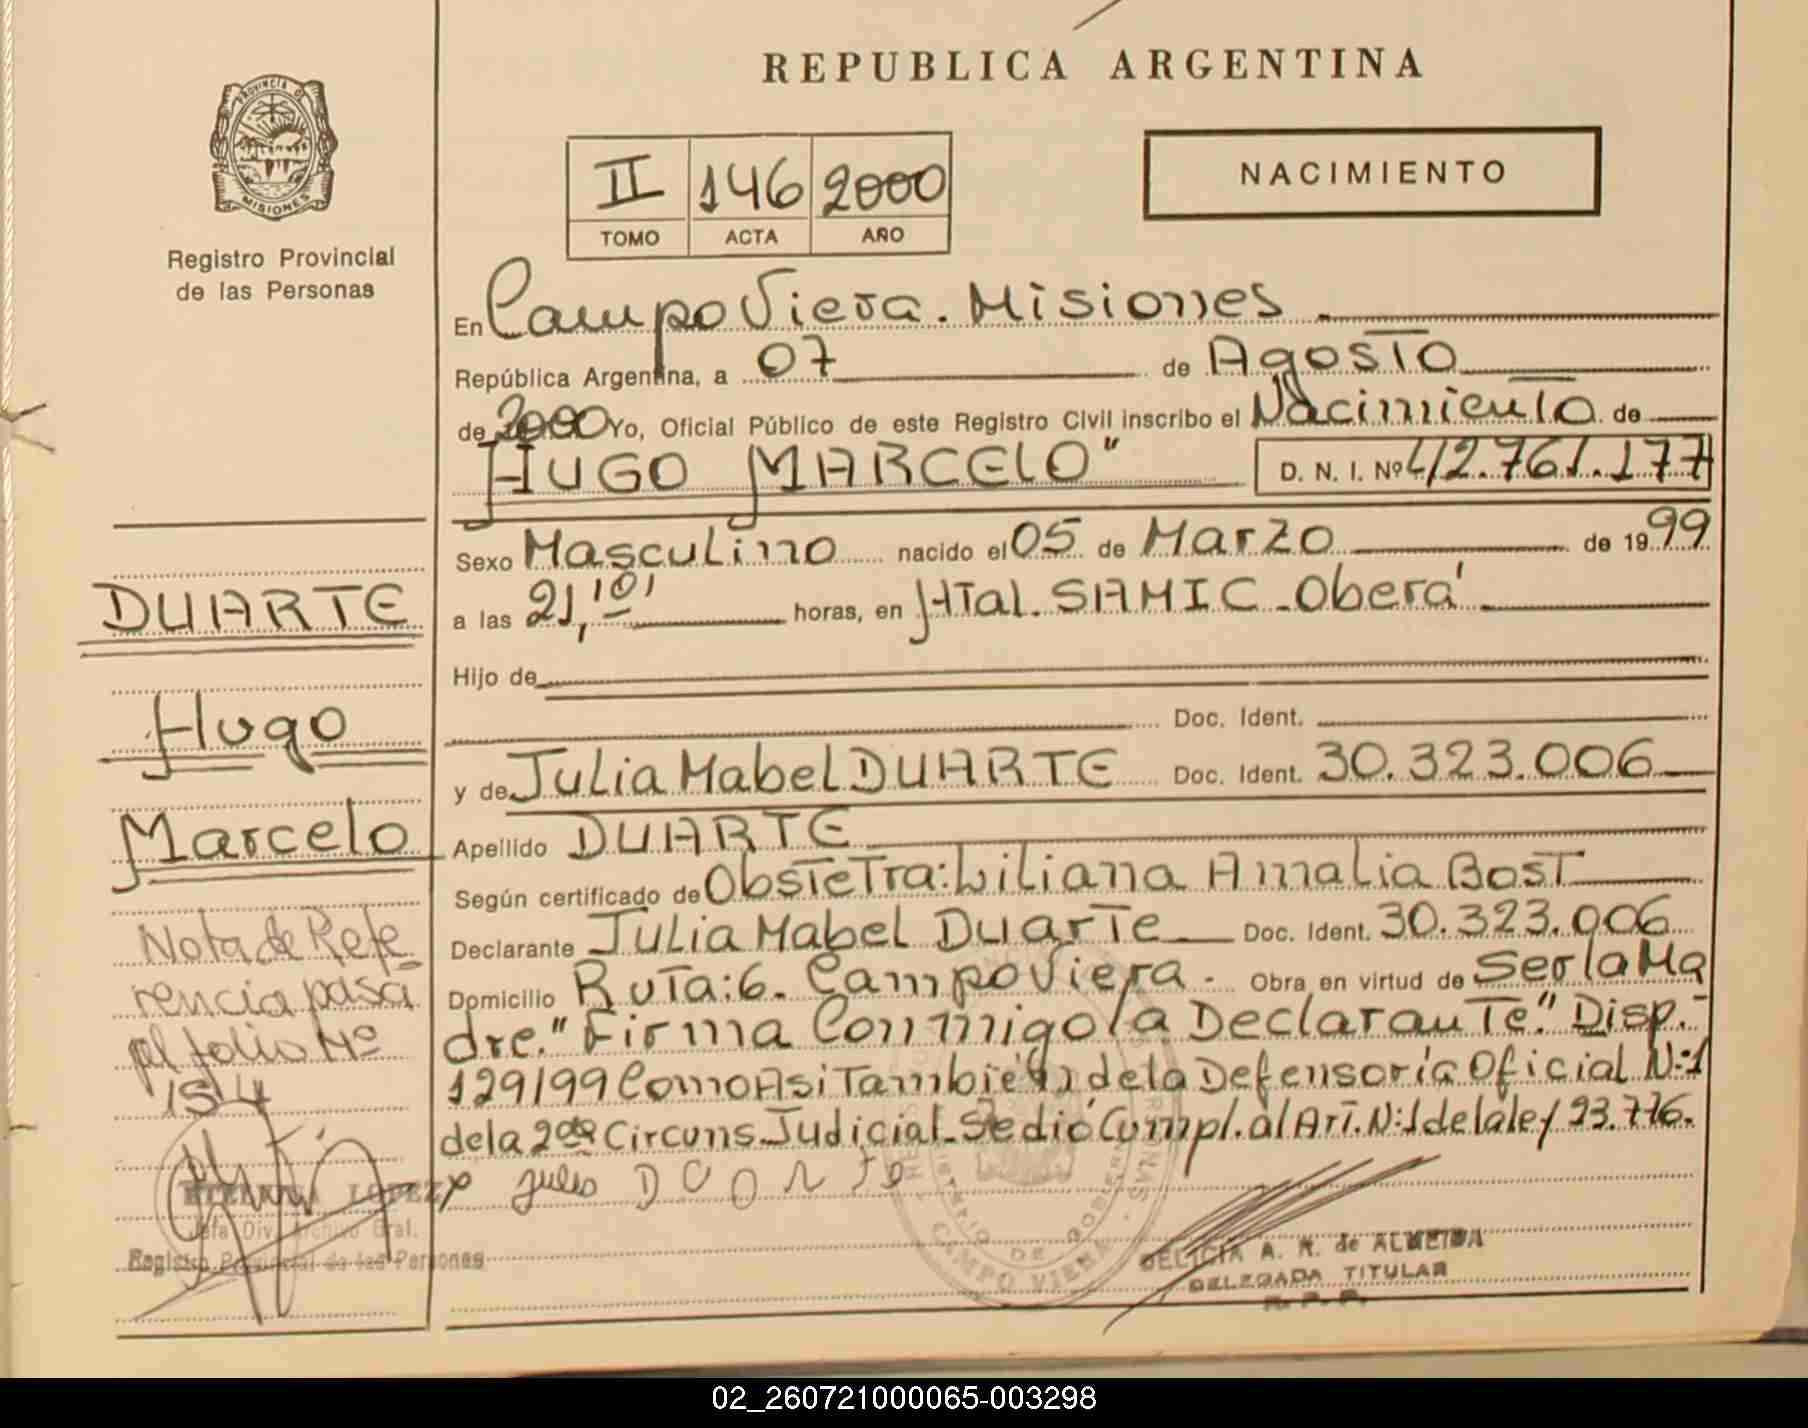 REPUBLICA ARGENTINA
PROVINCIA D
MISIONES
Registro Provincial
de las Personas
II 146 2000
TOMO ACTA AÑO
NACIMIENTO
En Campo Viera. Misiones
República Argentina, a 07 de Agosto
de 2000 Yo, Oficial Público de este Registro Civil inscribo el Nacimiento de
HUGO MARCELO" D. N. I. Nº 42.761.177
Sexo Masculino nacido el 05 de Marzo de 1999
a las 21,10' horas, en HTal. SAMIC - Oberá
Hijo de
Doc. Ident.
y de Julia Mabel DUARTE Doc. Ident. 30.323.006
Apellido DUARTE
Según certificado de Obstetra: Liliana Amalia BosT
Declarante Julia Mabel Duarte Doc. Ident. 30.323.006
Domicilio Ruta: 6. Campo Viera - Obra en virtud de Ser la Ma
dre." Firma Conmigo la Declarante." Disp.-
129/99 Como Asi También de la Defensoría Oficial N:1
de la 2da Circuns. Judicial. Se dió Cumpl. al Art. N:1 de la ley 23.776.
x Julia DUARTE
DUARTE
Hugo
Marcelo
Nota de Refe
rencia pasa
al folio Nº
154
LOPEZ
Jefa Div. Archivo Gral.
Registro Provincial de las Personas
CAMPO VIERA
DELICIA A. R. de ALMEIDA
DELEGADA TITULAR
R. P. P.
02_260721000065-003298